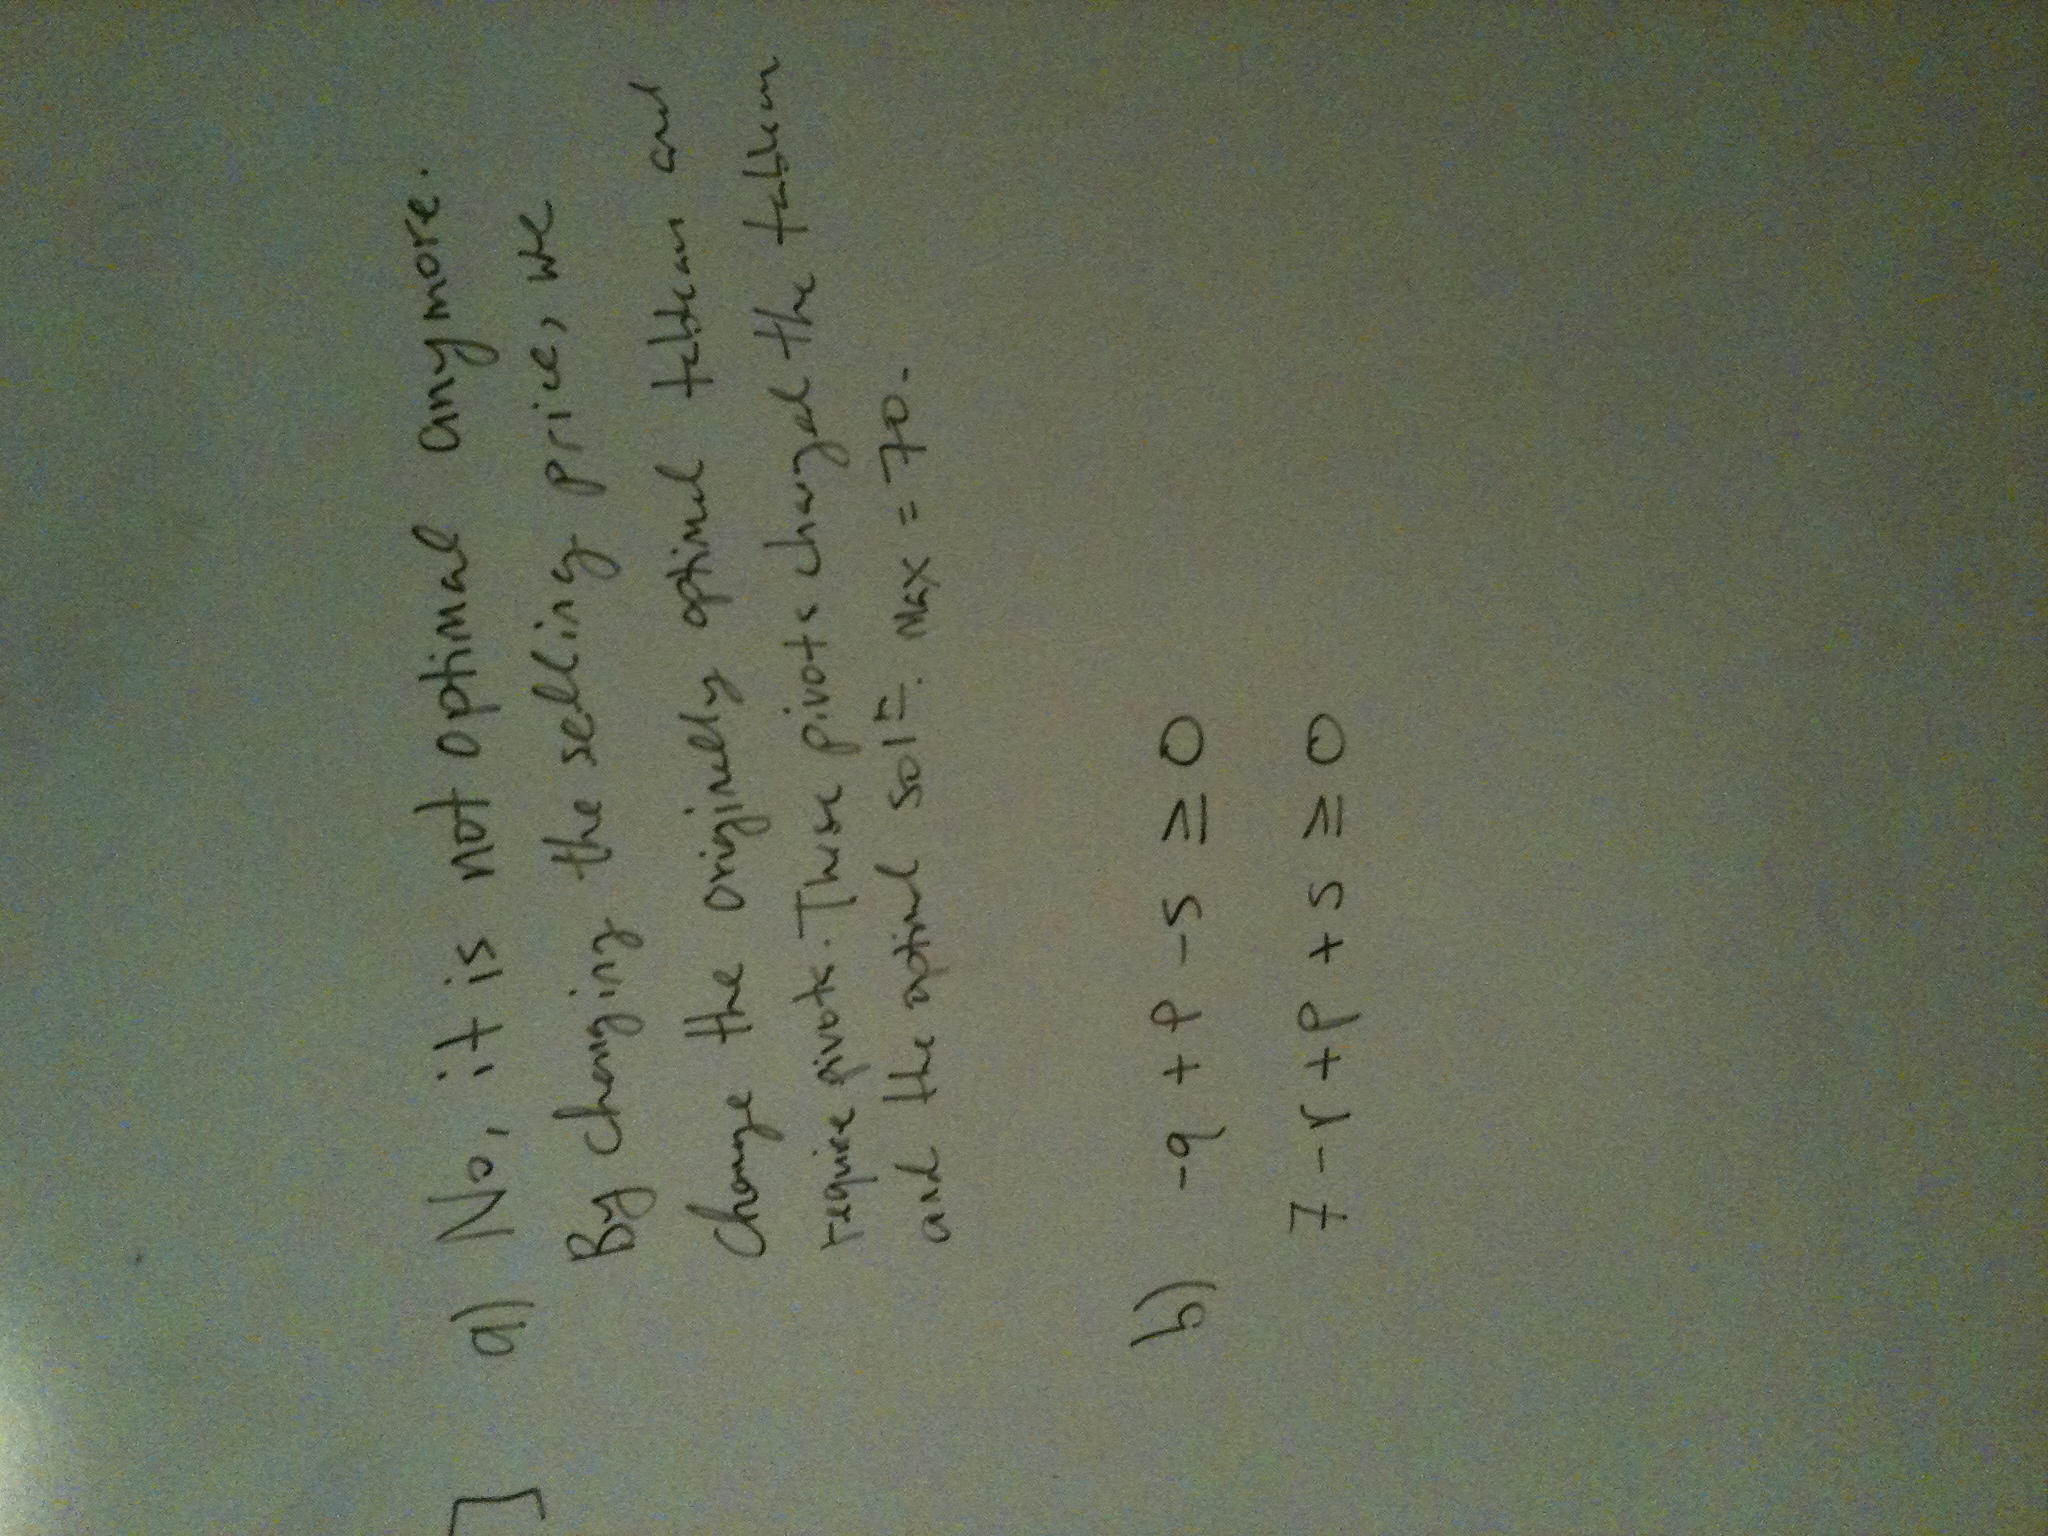 a) No, it is not optimal anymore.
By changing the selling price, we
change the originally optimal tableau and
require pivots. These pivots changed the tableau
and the optimal solⁿ. Max = 70.
b) -q + p - s ≥ 0
7 - r + p + s ≥ 0